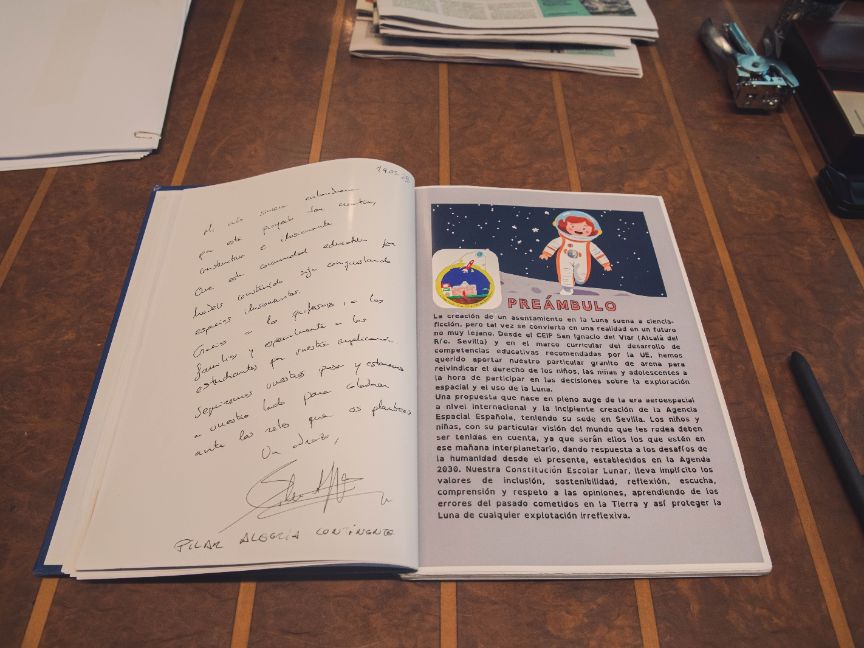 que este proyecto tan
constructivo e ilusionante
que esta comunidad educativa
habéis construido siga conquistando
espacios ilusionantes.
Gracias a los profesores, a las
familias y especialmente a los
estudiantes por vuestra implicación.
Seguiremos vuestros pasos y estaremos
a vuestro lado para colaborar
ante los retos que os planteéis
Un abrazo,
PILAR ALEGRÍA CONTINENTE
PREÁMBULO
La creación de un asentamiento en la Luna suena a ciencia-
ficción, pero tal vez se convierta en una realidad en un futuro
no muy lejano. Desde el CEIP San Ignacio del Viar (Alcalá del
Río, Sevilla) y en el marco curricular del desarrollo de
competencias educativas recomendadas por la UE, hemos
querido aportar nuestro particular granito de arena para
reivindicar el derecho de los niños, las niñas y adolescentes a
la hora de participar en las decisiones sobre la exploración
espacial y el uso de la Luna.
Una propuesta que nace en pleno auge de la era aeroespacial
a nivel internacional y la incipiente creación de la Agencia
Espacial Española, teniendo su sede en Sevilla. Los niños y
niñas, con su particular visión del mundo que les rodea deben
ser tenidas en cuenta, ya que serán ellos los que estén en
ese mañana interplanetario, dando respuesta a los desafíos de
la humanidad desde el presente, establecidos en la Agenda
2030. Nuestra Constitución Escolar Lunar, lleva implícito los
valores de inclusión, sostenibilidad, reflexión, escucha,
comprensión y respeto a las opiniones, aprendiendo de los
errores del pasado cometidos en la Tierra y así proteger la
Luna de cualquier explotación irreflexiva.